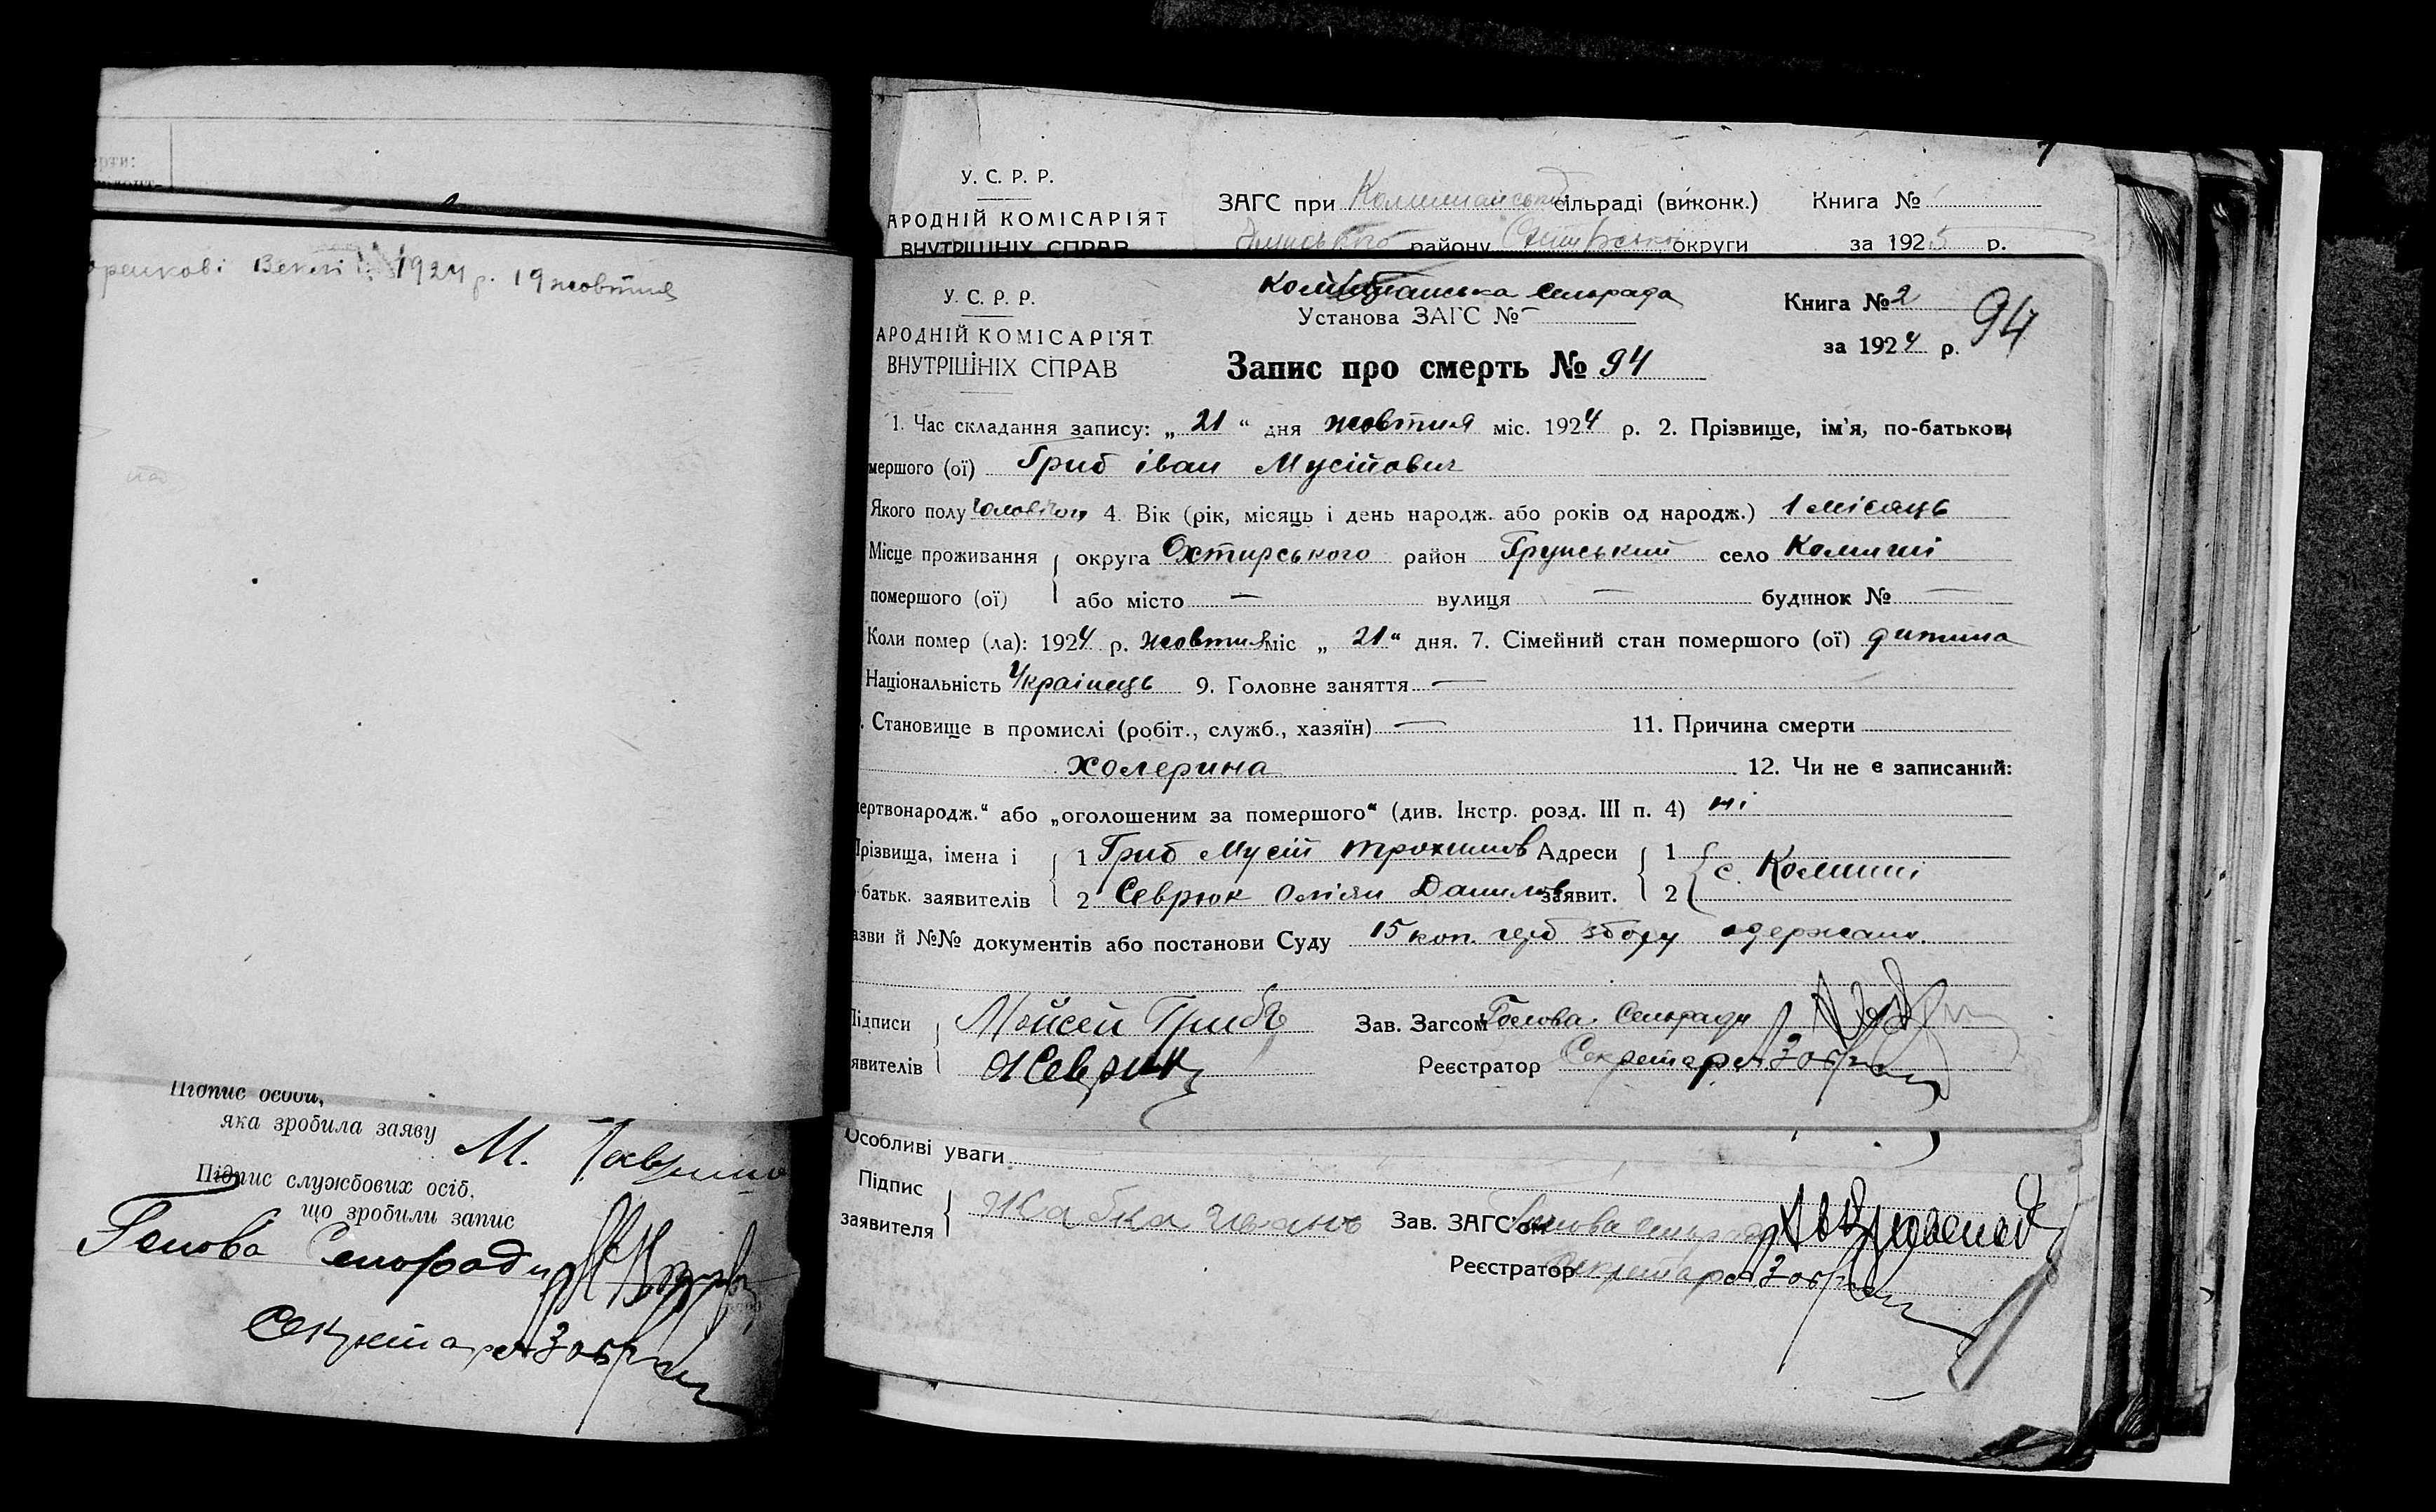 рти:
оренкові Векл 1924 р. 19 жовтня
Підпис особи,
яка зробила заяву М.
Підпис службових осіб,
що зробили запис
Голова Сельради
Секретар
У. С. Р. Р.
АРОДНІЙ КОМІСАРІЯТ
ВНУТРІШНІХ СПРАВ
ЗАГС при Комишанській сільраді (виконк.) Книга №
району округи за 1925 р.
У. С. Р. Р.
АРОДНІЙ КОМІСАРІЯТ
ВНУТРІШНІХ СПРАВ
Комишанська Сельрада
Установа ЗАГС № —
Книга № 2
за 1924 р. 94
Запис про смерть № 94
1. Час складання запису: „ 21 “ дня жовтня міс. 1924 р. 2. Прізвище, ім'я, по-батькові
мершого (ої) Гриб іван Мусійович
Якого полу чоловічої 4. Вік (рік, місяць і день народж. або років од народж.) 1 місяць
Місце проживання округа Охтирського район Грунський село Комиші
помершого (ої) або місто — вулиця — будинок № —
Коли помер (ла): 1924 р. жовтня міс „ 21 “ дня. 7. Сімейний стан помершого (ої) дитина
Національність Українець 9. Головне заняття —
. Становище в промислі (робіт., служб., хазяїн) — 11. Причина смерти
холерина 12. Чи не є записаний:
ертвонародж.“ або „оголошеним за помершого“ (див. Інстр. розд. III п. 4) ні
Прізвища, імена і 1 Гриб Мусій Трохимов Адреси 1
батьк. заявителів 2 Севрюк Омілян Данилов заявит. 2 с. Комиші
азви й №№ документів або постанови Суду 15 коп. герб збору одержано.
Підписи Мойсей Грибъ Зав. Загсом Голова Сельради
явителів Севрюк Реєстратор Секретар
Особливі уваги
Підпис
заявителя Жабка Иванъ Зав. ЗАГСом Голова сельради
Реєстратор Секретар